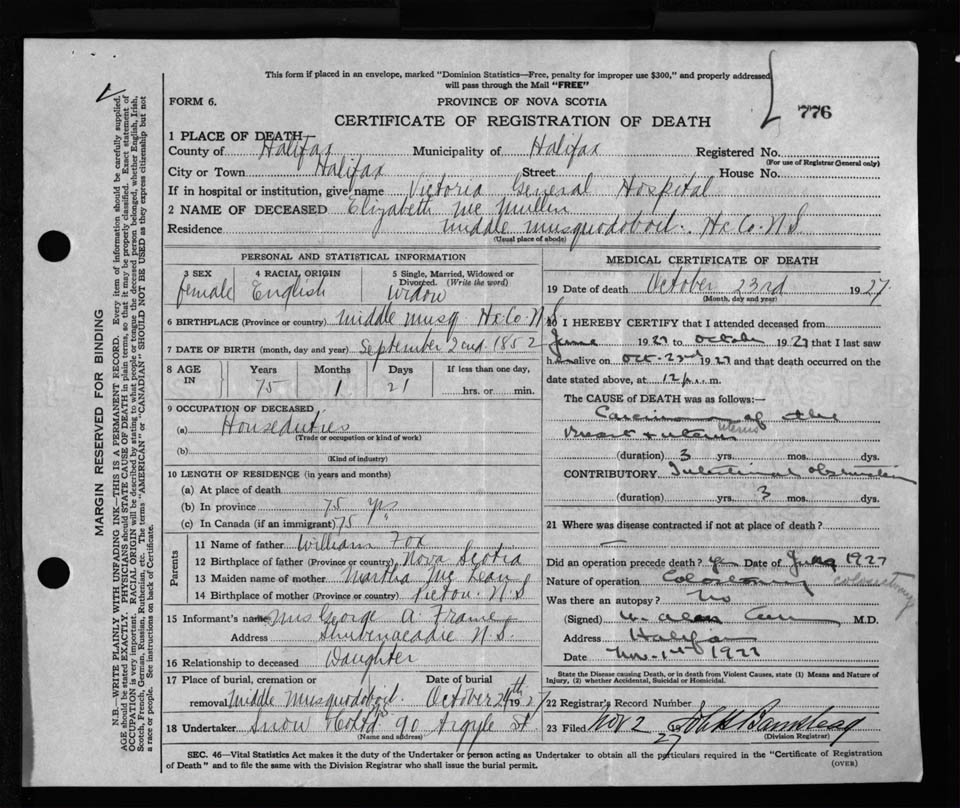 This form if placed in an envelope, marked "Dominion Statistics—Free, penalty for improper use $300," and properly addressed
will pass through the Mail "FREE"
FORM 6.
PROVINCE OF NOVA SCOTIA
776
CERTIFICATE OF REGISTRATION OF DEATH
1 PLACE OF DEATH—
County of Halifax Municipality of Halifax Registered No.
(For use of Registrar General only)
City or Town Halifax Street House No.
If in hospital or institution, give name Victoria General Hospital
2 NAME OF DECEASED Elizabeth Mc Mullin
Residence Middle Musquodoboit. Hx Co. N S
(Usual place of abode)
PERSONAL AND STATISTICAL INFORMATION
3 SEX 4 RACIAL ORIGIN 5 Single, Married, Widowed or
Divorced. (Write the word)
female English Widow
6 BIRTHPLACE (Province or country) Middle Musq Hx Co. N S
7 DATE OF BIRTH (month, day and year) September 2nd 1852
8 AGE IN Years Months Days If less than one day,
75 1 21 hrs. or min.
9 OCCUPATION OF DECEASED
(a) Houseduties
(Trade or occupation or kind of work)
(b)
(Kind of industry)
10 LENGTH OF RESIDENCE (in years and months)
(a) At place of death
(b) In province 75 yrs
(c) In Canada (if an immigrant) 75 "
Parents
11 Name of father William Fox
12 Birthplace of father (Province or country) Nova Scotia
13 Maiden name of mother Martha Mc Lean
14 Birthplace of mother (Province or country) Pictou. N S
15 Informant's name Mrs George A. Frame
Address Shubenacadie N. S.
16 Relationship to deceased Daughter
17 Place of burial, cremation or Date of burial
removal Middle Musquodoboit. October 24th 1927
18 Undertaker Snow & Co Ltd 90 Argyle St
Name and address)
MEDICAL CERTIFICATE OF DEATH
19 Date of death October 23rd 1927
(Month, day and year)
20 I HEREBY CERTIFY that I attended deceased from
June 1927 to October 1927 that I last saw
h alive on Oct. 23rd 1927 and that death occurred on the
date stated above, at 12 p. m.
The CAUSE OF DEATH was as follows:—
Carcinoma of the
breast & uterus uterus
(duration) 3 yrs. mos. dys.
CONTRIBUTORY Intestinal obstruction
(duration) yrs. 3 mos. dys.
21 Where was disease contracted if not at place of death?
—
Did an operation precede death? yes Date of 1927
Nature of operation Colostomy colostomy
Was there an autopsy? No
(Signed) M.D.
Address Halifax
Date Nov. 1st 1927
State the Disease causing Death, or in death from Violent Causes, state (1) Means and Nature of
Injury, (2) whether Accidental, Suicidal or Homicidal.
22 Registrar's Record Number
23 Filed Nov 2 27
(Division Registrar)
SEC. 46—Vital Statistics Act makes it the duty of the Undertaker or person acting as Undertaker to obtain all the particulars required in the "Certificate of Registration
of Death" and to file the same with the Division Registrar who shall issue the burial permit.
(OVER)
MARGIN RESERVED FOR BINDING
N.B.—WRITE PLAINLY WITH UNFADING INK—THIS IS A PERMANENT RECORD. Every item of information should be carefully supplied.
AGE should be stated EXACTLY. PHYSICIANS should STATE CAUSE OF DEATH in plain terms, so that it may be properly classified. Exact statement of
OCCUPATION is very important. RACIAL ORIGIN will be described by stating to what people or tongue the deceased person belonged, whether English, Irish,
Scotch, French, German, Russian, Ruthenian, etc. The terms "AMERICAN" or "CANADIAN" SHOULD NOT BE USED as they express citizenship but not
a race or people. See instructions on back of Certificate.